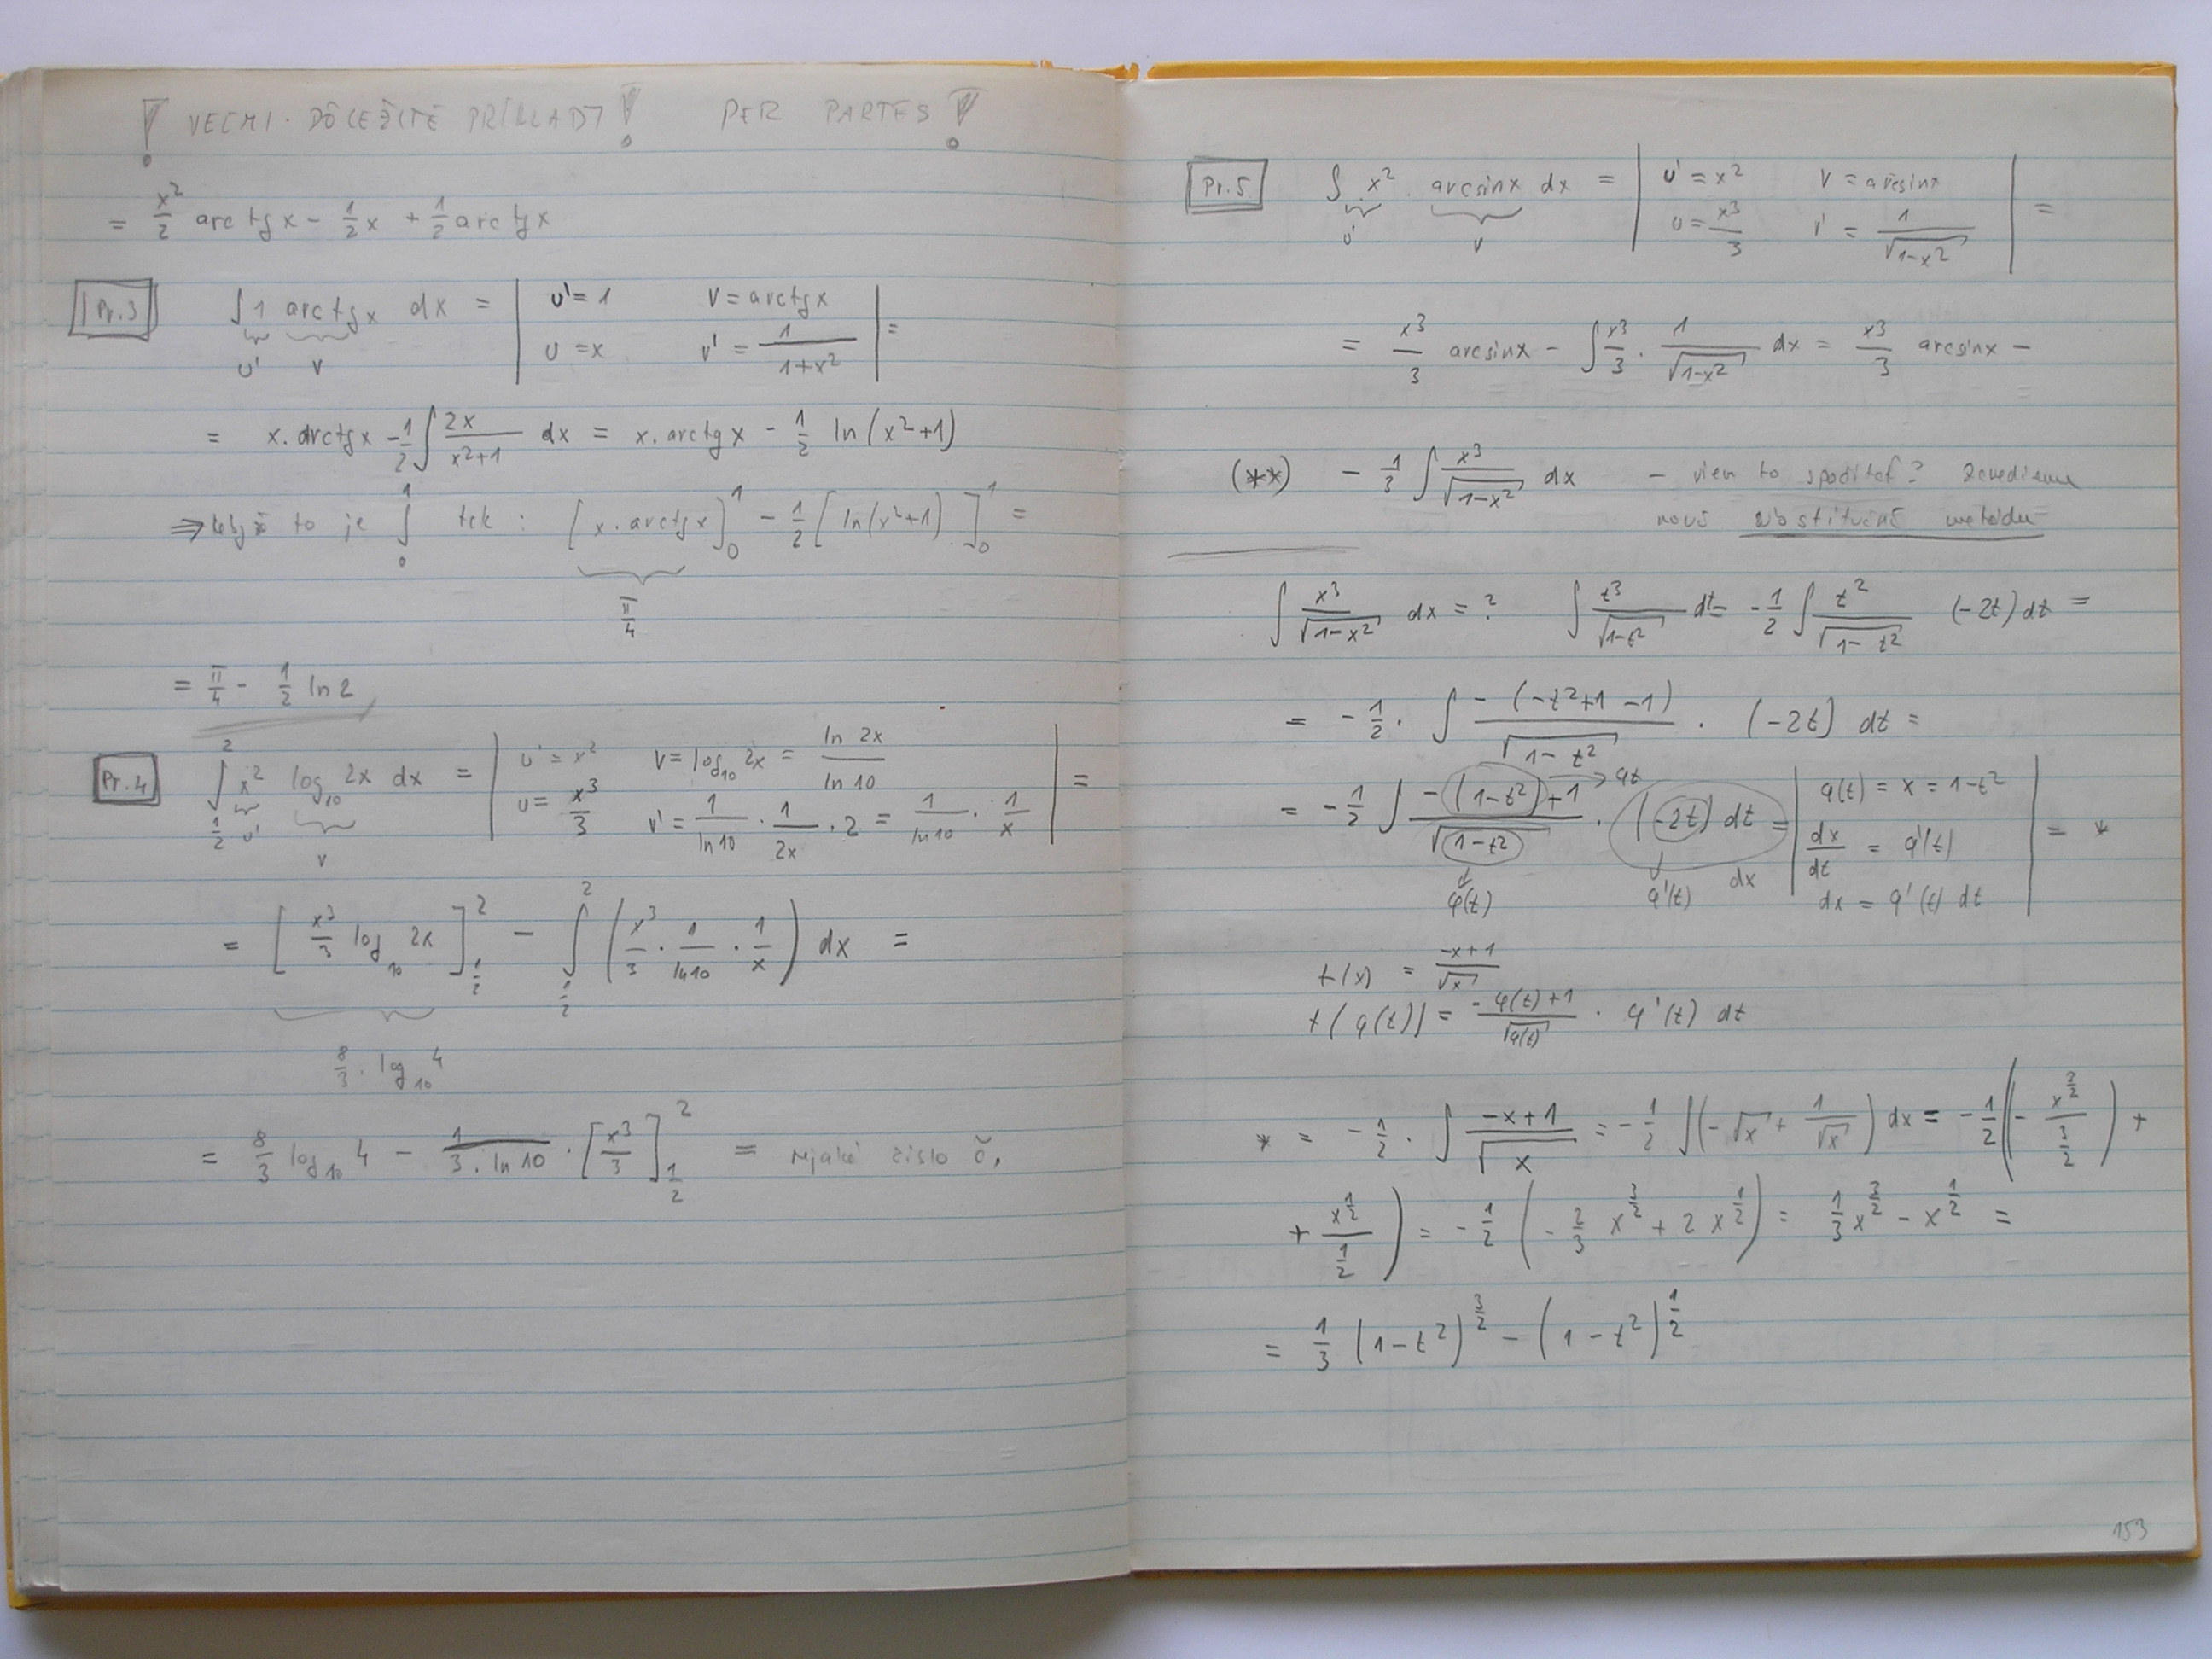 ! VEĽMI DÔLEŽITÉ PRÍKLADY ! PER PARTES !
= x²/2 arctg x - 1/2 x + 1/2 arctg x
Pr.3 ∫ 1 arctg x dx = | u' = 1 v = arctg x | =
u' v | u = x v' = 1/(1+x²) |
= x . arctg x - 1/2 ∫ 2x/(x²+1) dx = x . arctg x - 1/2 ln(x²+1)
⇒ to je ∫₀¹ tak : [x . arctg x]₀¹ - 1/2 [ln(x²+1)]₀¹ =
π/4
= π/4 - 1/2 ln 2
Pr.4 ∫_{1/2}^{2} x² log₁₀ 2x dx = | u' = x² v = log₁₀ 2x = ln 2x / ln 10 | =
u' v | u = x³/3 v' = 1/ln 10 . 1/2x . 2 = 1/ln 10 . 1/x |
= [x³/3 log₁₀ 2x]_{1/2}^{2} - ∫_{1/2}^{2} (x³/3 . 1/ln 10 . 1/x) dx =
8/3 . log₁₀ 4
= 8/3 log₁₀ 4 - 1/(3 . ln 10) . [x³/3]_{1/2}^{2} = nejaké číslo č.
Pr.5 ∫ x² . arcsin x dx = | u' = x² v = arcsin x | =
u' v | u = x³/3 v' = 1/√(1-x²) |
= x³/3 arcsin x - ∫ x³/3 . 1/√(1-x²) dx = x³/3 arcsin x -
(**) - 1/3 ∫ x³/√(1-x²) dx - viem to spočítať? Zavedieme
novú substitučnú metódu
∫ x³/√(1-x²) dx = ? ∫ t³/√(1-t²) dt = - 1/2 ∫ t²/√(1-t²) (-2t) dt =
= - 1/2 . ∫ -(-t²+1-1)/√(1-t²) . (-2t) dt =
= - 1/2 ∫ (-(1-t²)+1)/√(1-t²) . (-2t) dt = | φ(t) = x = 1-t² | = *
φt φ(t) φ'(t) dx | dx/dt = φ'(t) |
| dx = φ'(t) dt |
f(x) = (-x+1)/√x
f(φ(t)) = (-φ(t)+1)/√φ(t) . φ'(t) dt
* = - 1/2 . ∫ (-x+1)/√x = - 1/2 ∫ (-√x + 1/√x) dx = - 1/2 ((- x^{3/2}/(3/2)) +
+ x^{1/2}/(1/2)) = - 1/2 (- 2/3 x^{3/2} + 2 x^{1/2}) = 1/3 x^{3/2} - x^{1/2} =
= 1/3 (1-t²)^{3/2} - (1-t²)^{1/2}
153